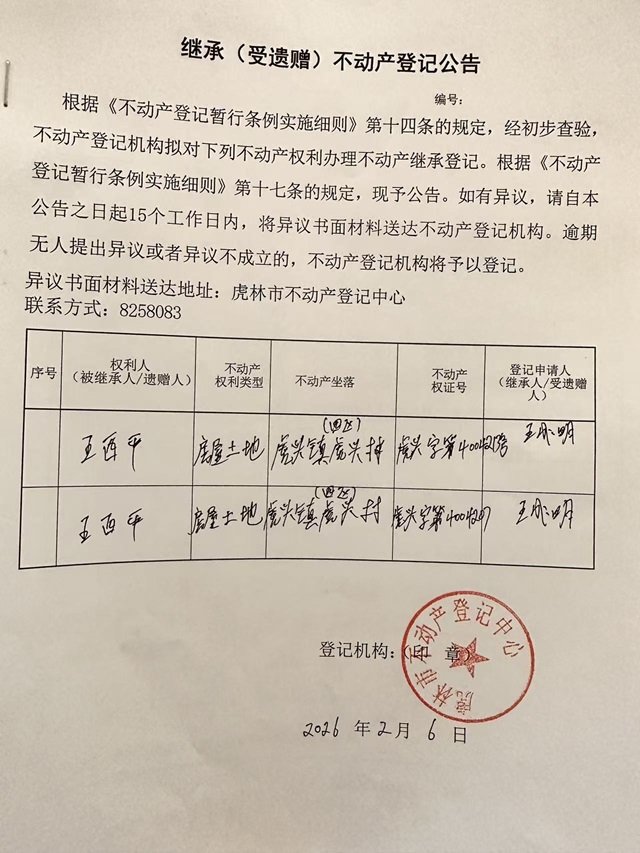 继承（受遗赠）不动产登记公告
编号：
根据《不动产登记暂行条例实施细则》第十四条的规定，经初步查验，
不动产登记机构拟对下列不动产权利办理不动产继承登记。根据《不动产
登记暂行条例实施细则》第十七条的规定，现予公告。如有异议，请自本
公告之日起15个工作日内，将异议书面材料送达不动产登记机构。逾期
无人提出异议或者异议不成立的，不动产登记机构将予以登记。
异议书面材料送达地址：虎林市不动产登记中心
联系方式：8258083
序号 权利人（被继承人/遗赠人） 不动产权利类型 不动产坐落 不动产权证号 登记申请人（继承人/受遗赠人）
王西平 房屋土地 虎兴镇虎兴村 虎兴字第
王西平 房屋土地 虎兴镇虎兴村 虎兴字第
登记机构：（印 章）
虎林市不动产登记中心
2026年2月6日